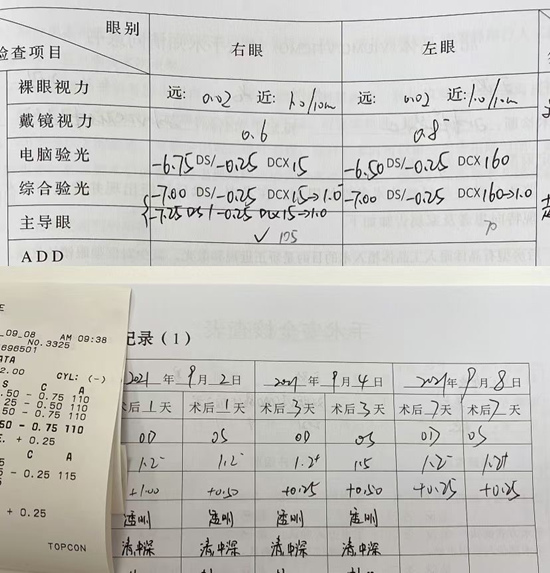 眼别
检查项目
右眼
左眼
裸眼视力 远: 0.02 近: 1.0/10cm 远: 0.02 近: 1.0/10cm
戴镜视力 0.6 0.8⁻
电脑验光 -6.75 DS/-0.25 DCX 15 -6.50 DS/-0.25 DCX 160
综合验光 -7.00 DS/-0.25 DCX 15→1.0 -7.00 DS/-0.25 DCX 160→1.0
-7.25 DS/-0.25 DCX 15→1.0
主导眼 ✓
ADD
记录（1）
2021 年 9 月 2 日 2021 年 9 月 4 日 2021 年 9 月 8 日
术后 1 天 术后 1 天 术后 3 天 术后 3 天 术后 7 天 术后 7 天
OD OS OD OS OD OS
1.2⁻ 1.2⁻ 1.2⁺ 1.5 1.2⁻ 1.2⁺
+1.00 +0.50 +0.25 +0.50 +0.25 +0.25
透明 透明 透明 透明
清中深 清中深 清中深 清中深
_09_08 AM 09:38
NO.3325
696501
ATA
2.00 CYL: (-)
S C A
.50 - 0.75 110
.25 - 0.50 110
.50 - 0.75 110
50 - 0.75 110
E. + 0.25
C A
- 0.25 115
+ 0.25
TOPCON